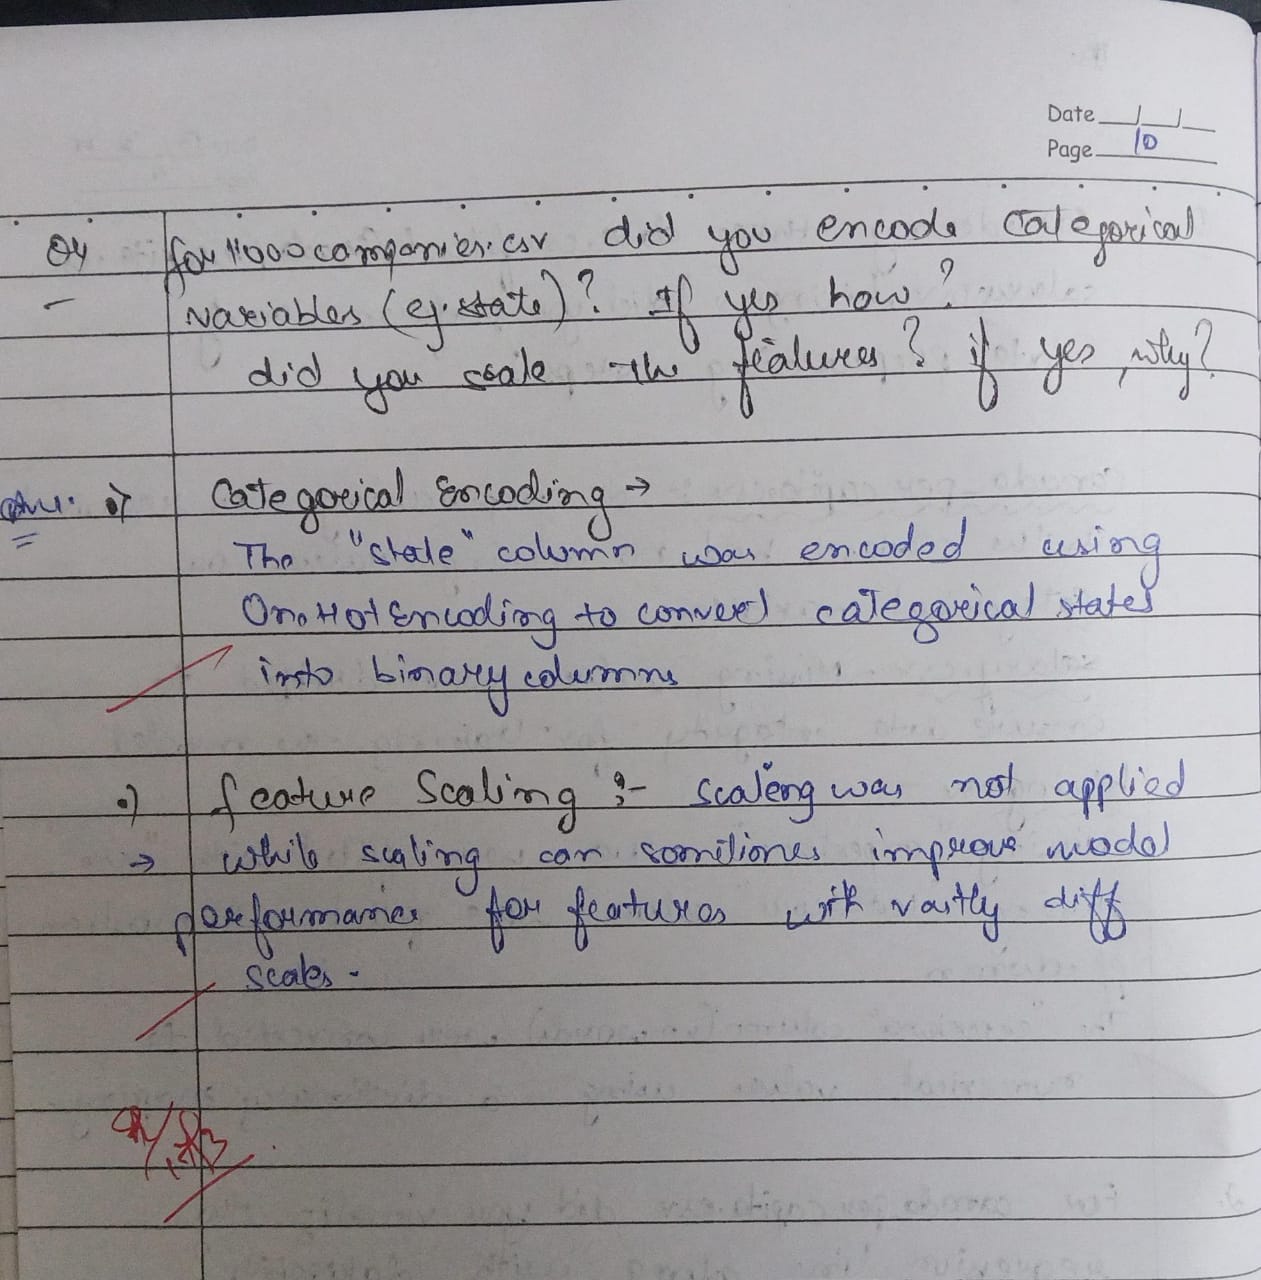 Date
Page 10
Q4 for 1000companies.csv did you encode categorical
variables (eg. state)? If yes how?
did you scale the features? if yes, why?
Ans. Categorical Encoding →
The "state" column was encoded using
OneHotEncoding to convert categorical states
into binary columns
feature Scaling :- scaleng was not applied
→ while scaling can sometimes improve model
performance for features with vastly diff
scales.